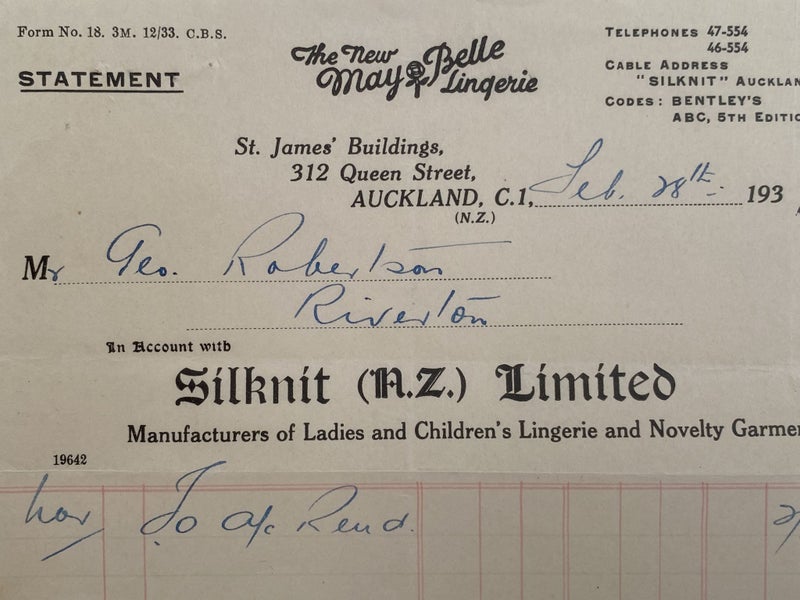 Form No. 18. 3M. 12/33. C.B.S.
STATEMENT
The New
May Belle
Lingerie
TELEPHONES 47-554
46-554
CABLE ADDRESS
"SILKNIT" AUCKLAN
CODES: BENTLEY'S
ABC, 5TH EDITIO
St. James' Buildings,
312 Queen Street,
AUCKLAND, C.1, Feb. 28th 193
(N.Z.)
Mr Geo. Robertson
Riverton
In Account with
Silknit (N.Z.) Limited
Manufacturers of Ladies and Children's Lingerie and Novelty Garmen
19642
Nov To a/c Rend.